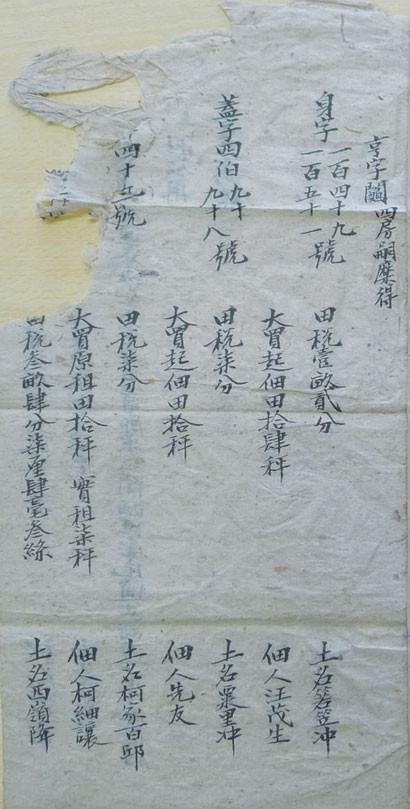 亨字鬮四房嗣麋得
身字一百四十九
一百五十一號
田稅壹畝貳分
土名箬笠冲
大買起佃田拾肆秤
佃人汪茂生
蓋字四伯九十
九十八號
田稅柒分
土名粟里冲
大買起佃田拾秤
佃人先友
四十五號
田稅柒分
土名柯家百邱
大買原租田拾秤 實租柒秤
佃人柯細讓
田稅叁畝肆分柒厘肆毫叁絲
土名西嶺降